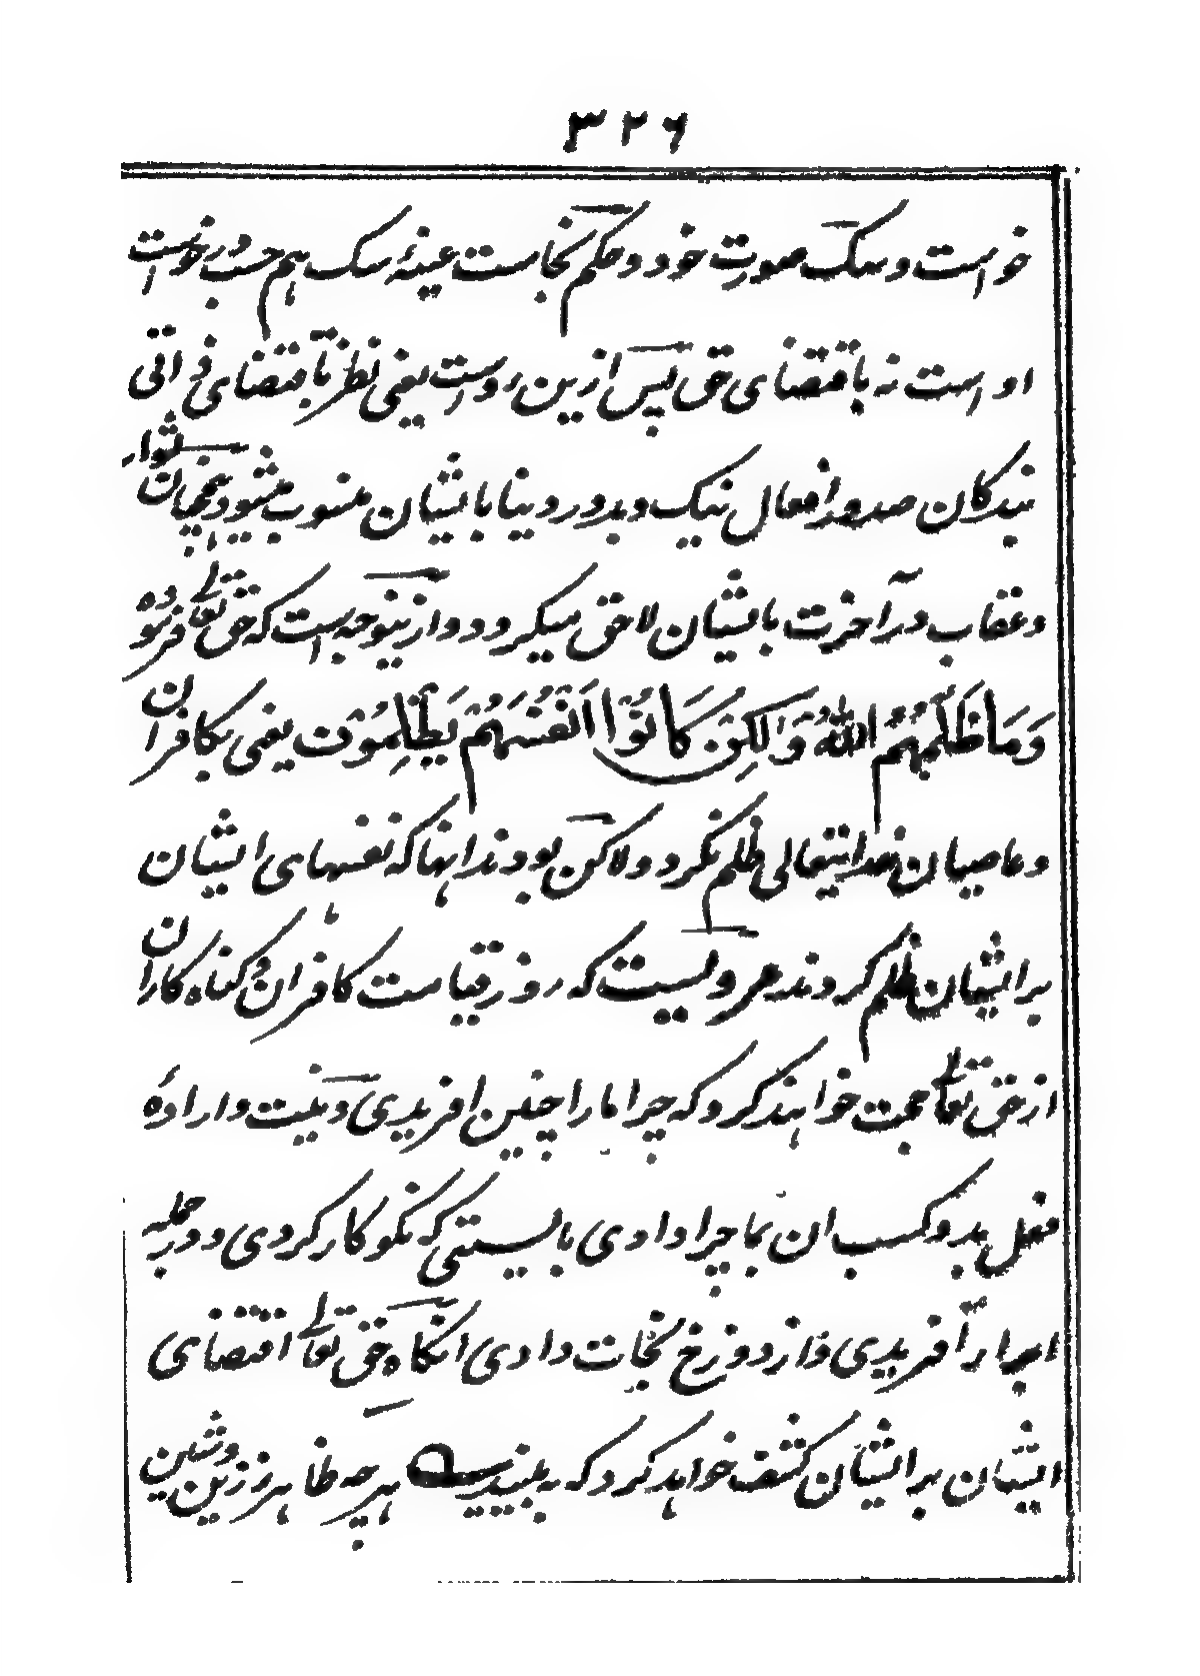 ۳۲۶
خواست و سک صورت خود و حکم نجاست عینهٔ سک هم حسب درخواست
او است نه باقتضای حق پس ازین روست یعنی نظر تا باقتضای ذاتی
بندکان صدور افعال نیک و بد در دینا بایشان منسوب میشود همچنان ثواب
و عقاب در آخرت بایشان لاحق میکردد و ازینوجه است که حق تعالی فرموده
وَمَا ظَلَمَهُمُ اللهُ وَلٰكِنْ كَانُوْا اَنْفُسَهُمْ يَظْلِمُوْنَ یعنی بکافران
و عاصیان خدایتعالی ظلم نکرد ولاکن بودند اینها که نفسهای ایشان
برایشان ظلم کردند مرویست که روز قیامت کافران و کناه کاران
از حق تعالی حجت خواهند کرد که چرا مارا چنین افریدی و نیت و اراده
فعل بد و کسب ان بما چرا دادی بایستی که نکو کار کردی و در جمله
ابرار آفریدی و از دوزخ نجات دادی انکاه حق تعالی اقتضای
ایشان برایشان کشف خواهد کرد که به بینید هر چه ظاهر زین و شین